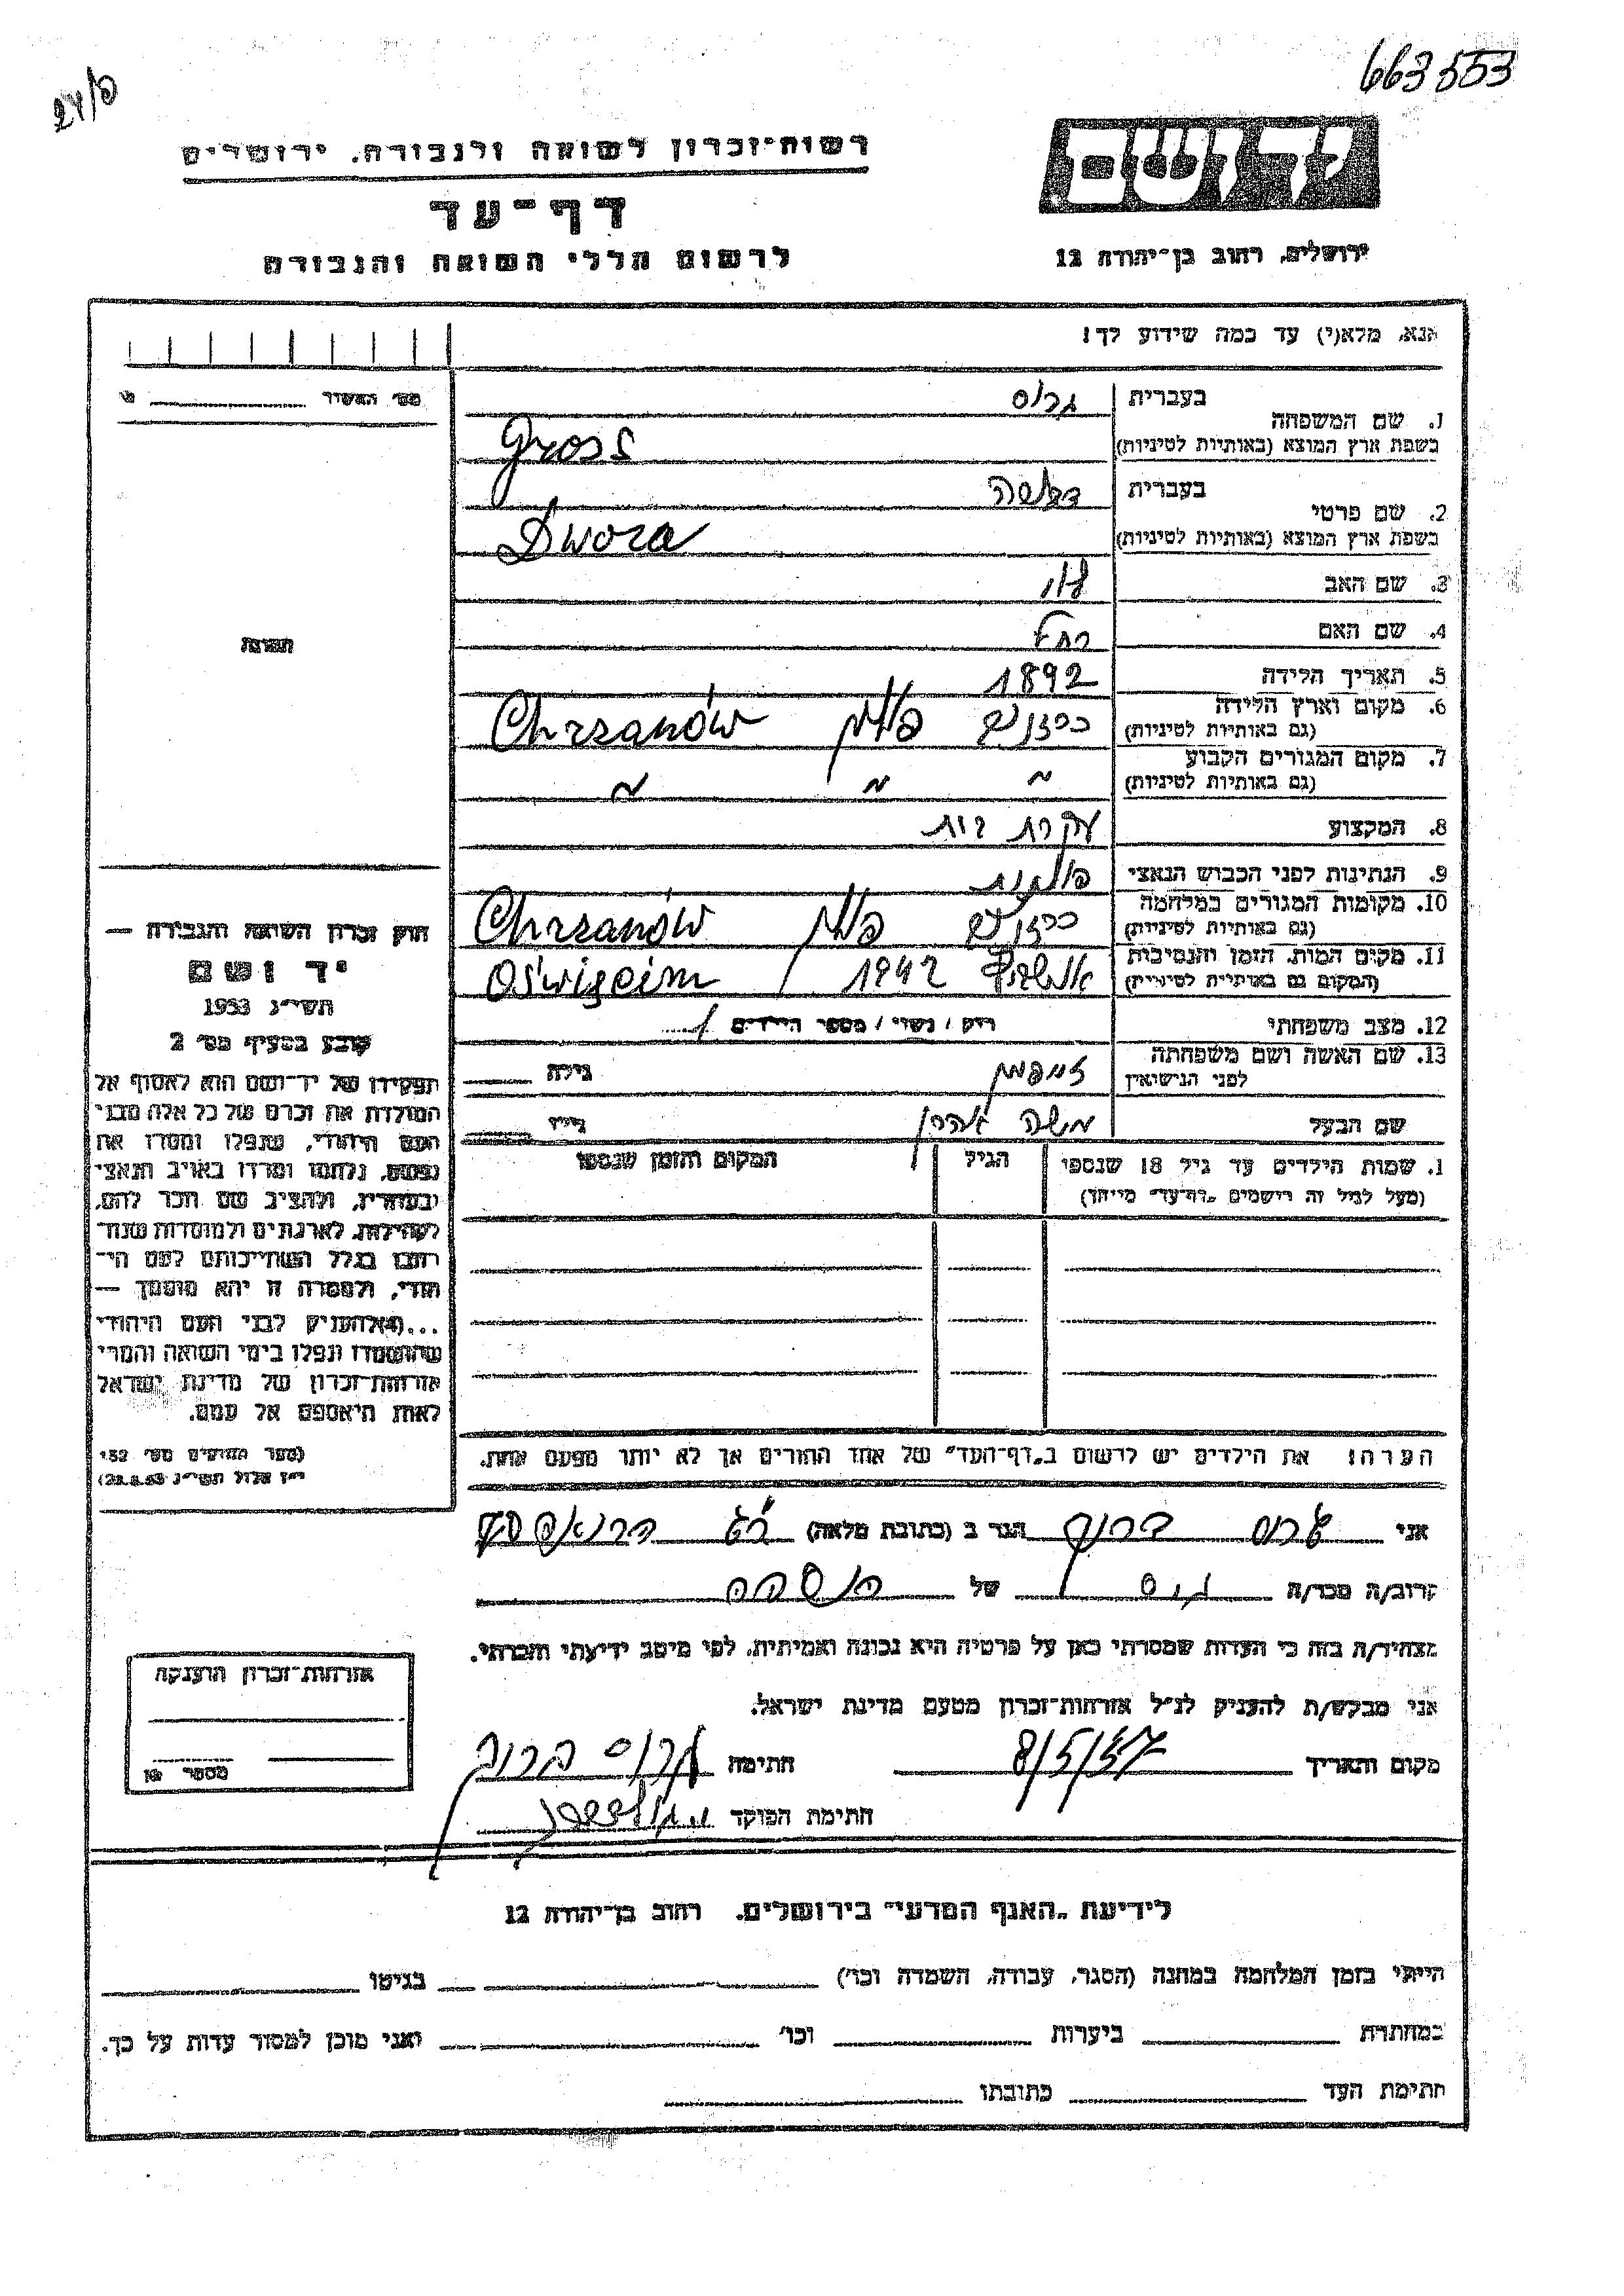 663553
רשות־זכרון לשואה ולגבורה, ירושלים
דף־עד
לרשום חללי השואה והגבורה
יד ושם
ירושלים, רחוב בן־יהודה 12
אנא, מלא(י) עד כמה שידוע לך!
1. שם המשפחה בעברית גרוס
בשפת ארץ המוצא (באותיות לטיניות) Gross
2. שם פרטי בעברית
בשפת ארץ המוצא (באותיות לטיניות) Dwora
3. שם האב
4. שם האם רחל
5. תאריך הלידה 1892
6. מקום וארץ הלידה
(גם באותיות לטיניות) פולין Chrzanów
7. מקום המגורים הקבוע
(גם באותיות לטיניות) " " "
8. המקצוע עקרת בית
9. הנתינות לפני הכבוש הנאצי פולנית
10. מקומות המגורים במלחמה
(גם באותיות לטיניות) פולין Chrzanów
11. מקום המות, הזמן והנסיבות
(המקום גם באותיות לטיניות) 1942 / Oświęcim
12. מצב משפחתי רוק / נשוי / מספר הילדים
13. שם האשה ושם משפחתה
לפני הנישואין גילה
שם הבעל משה אהרן גילו
1. שמות הילדים עד גיל 18 שנספו הגיל המקום והזמן שנספו
(מעל לגיל זה רושמים "דף־עד" מיוחד)
הערה: את הילדים יש לרשום ב"דף־העד" של אחד ההורים אך לא יותר מפעם אחת.
מס' האשדר
תמונה
חוק זכרון השואה והגבורה —
יד ושם
תשי"ג 1953
קובע בסעיף מס' 2
תפקידו של יד־ושם הוא לאסוף אל
המולדת את זכרם של כל אלה מבני
העם היהודי, שנפלו ומסרו את
נפשם, נלחמו ומרדו באויב הנאצי
ובעוזריו, ולהציב שם וזכר להם,
לקהילות, לארגונים ולמוסדות שנח־
רבו בגלל השתייכותם לעם הי־
הודי, ולמטרה זו יהא מוסמך —
...(4) להעניק לבני העם היהודי
שהושמדו ונפלו בימי השואה והמרי
אזרחות־זכרון של מדינת ישראל
לאות היאספם אל עמם.
(ספר החוקים מס' 132,
י"ז אלול תשי"ג 28.8.53)
אני גרוס ברוך הגר ב (כתובת מלאה)
קרוב/ה מכר/ה גיס של הנספה
מצהיר/ה בזה כי העדות שמסרתי כאן על פרטיה היא נכונה ואמיתית, לפי מיטב ידיעתי והכרתי.
אני מבקש/ת להעניק לנ"ל אזרחות־זכרון מטעם מדינת ישראל.
מקום ותאריך 8/5/57 חתימה גרוס ברוך
חתימת הפוקד
אזרחות־זכרון הוענקה
מספר
לידיעת "האגף המדעי" בירושלים, רחוב בן־יהודה 12
הייתי בזמן המלחמה במחנה (הסגר, עבודה, השמדה וכו') בגיטו
במחתרת ביערות וכו' ואני מוכן למסור עדות על כך.
חתימת העד כתובתו